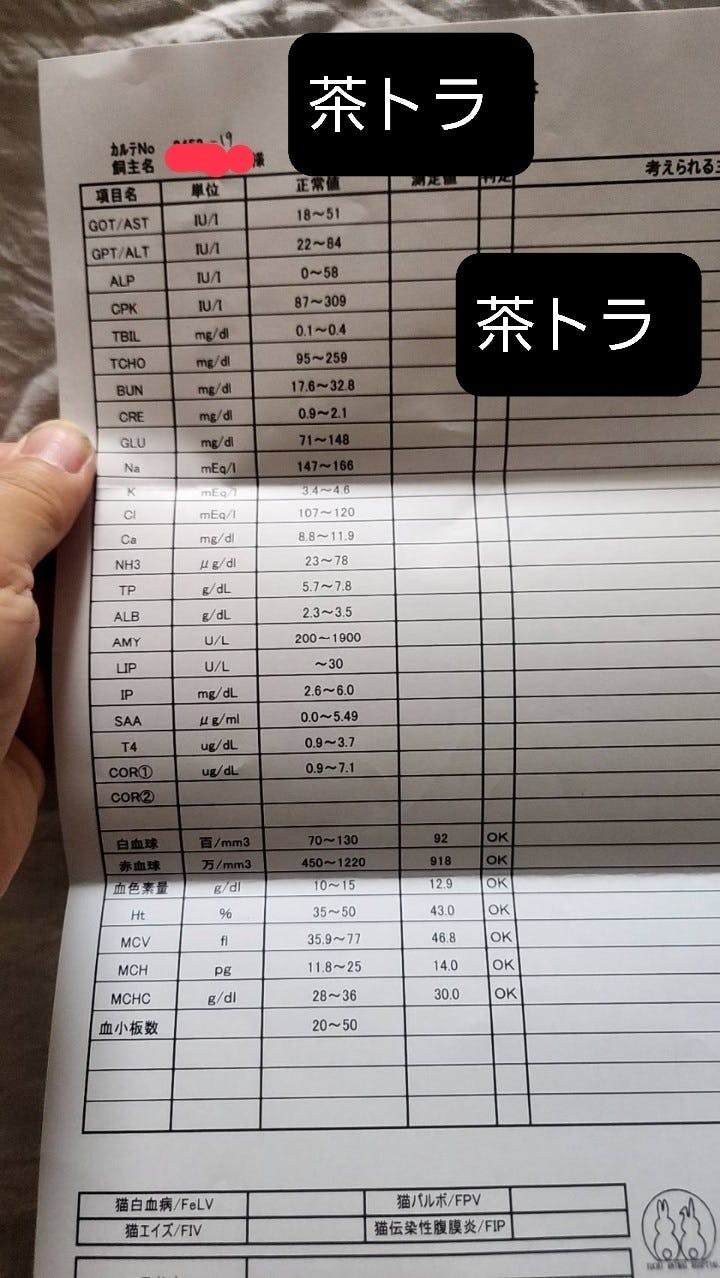 茶トラ
カルテNo -19
飼主名 様
項目名 単位 正常値 測定値 判定 考えられる
GOT/AST IU/l 18～51
GPT/ALT IU/l 22～84
ALP IU/l 0～58
茶トラ
CPK IU/l 87～309
TBIL mg/dl 0.1～0.4
TCHO mg/dl 95～259
BUN mg/dl 17.6～32.8
CRE mg/dl 0.9～2.1
GLU mg/dl 71～148
Na mEq/l 147～166
K mEq/l 3.4～4.6
Cl mEq/l 107～120
Ca mg/dl 8.8～11.9
NH3 μg/dl 23～78
TP g/dL 5.7～7.8
ALB g/dL 2.3～3.5
AMY U/L 200～1900
LIP U/L ～30
IP mg/dL 2.6～6.0
SAA μg/ml 0.0～5.49
T4 ug/dL 0.9～3.7
COR① ug/dL 0.9～7.1
COR②
白血球 百/mm3 70～130 92 OK
赤血球 万/mm3 450～1220 918 OK
血色素量 g/dl 10～15 12.9 OK
Ht % 35～50 43.0 OK
MCV fl 35.9～77 46.8 OK
MCH pg 11.8～25 14.0 OK
MCHC g/dl 28～36 30.0 OK
血小板数 20～50
猫白血病/FeLV 猫パルボ/FPV
猫エイズ/FIV 猫伝染性腹膜炎/FIP